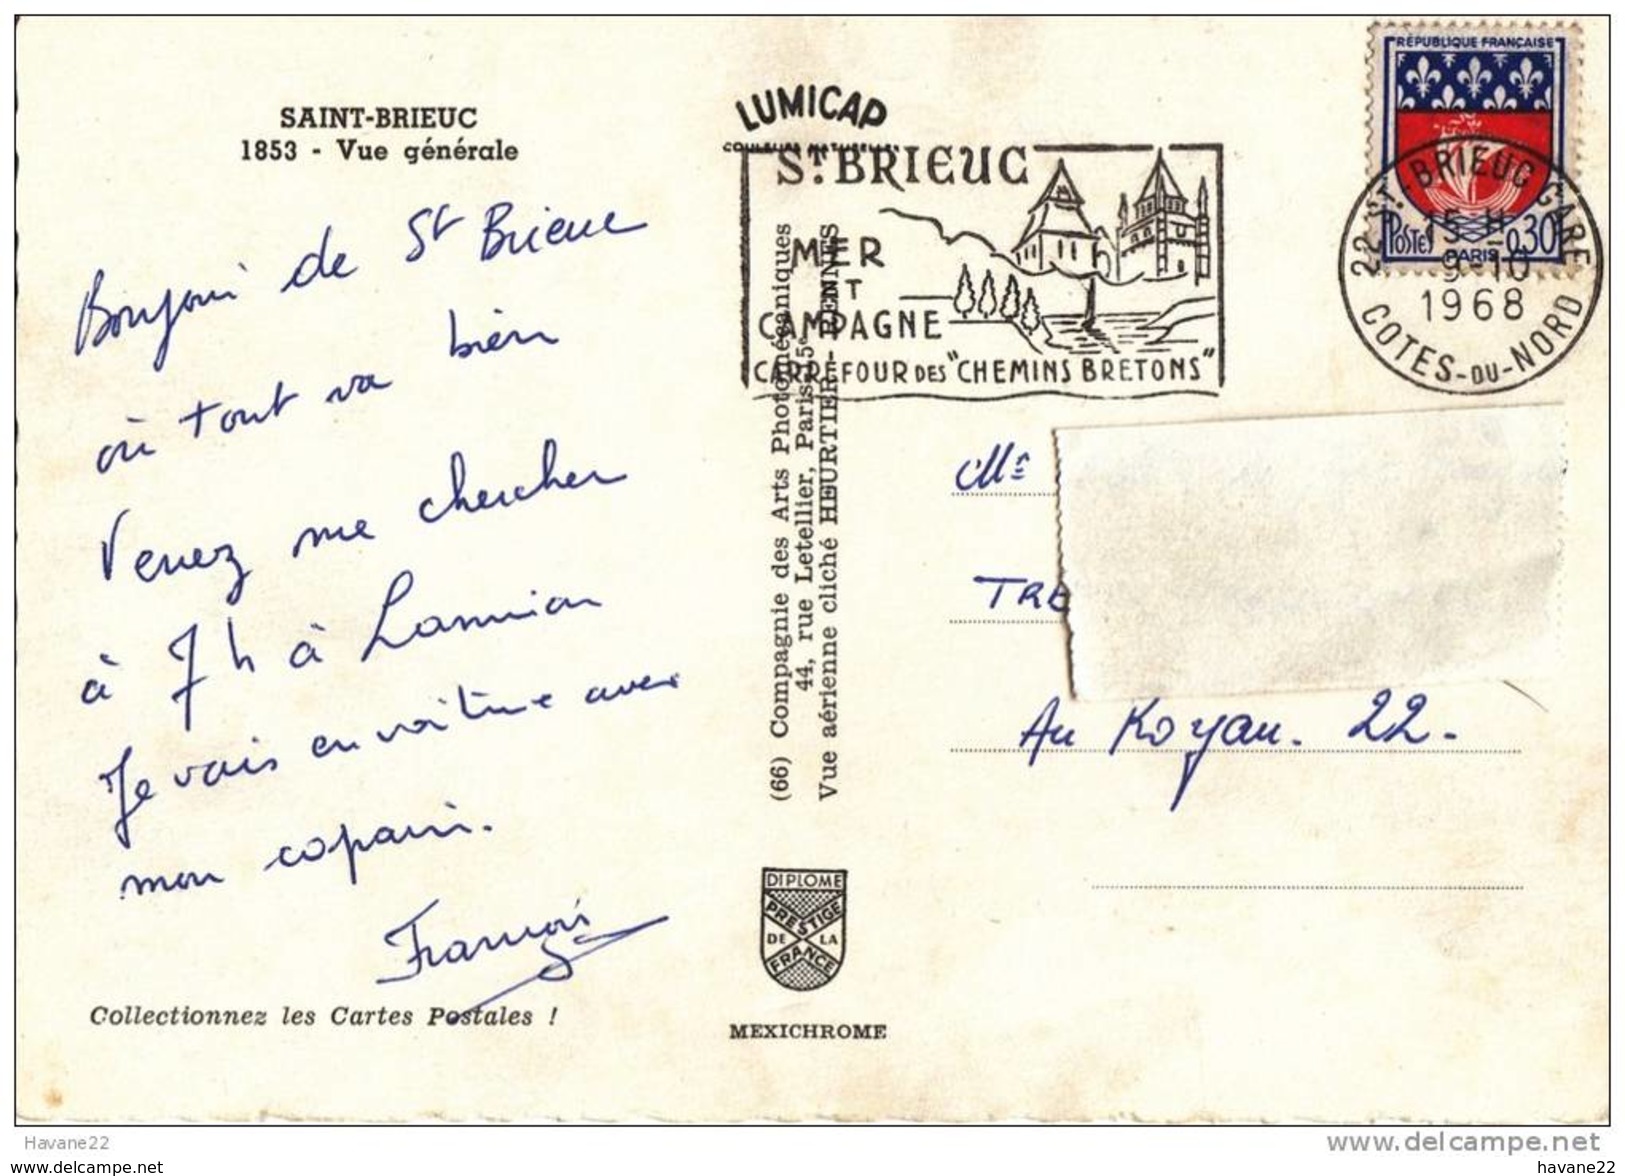 SAINT-BRIEUC
1853 - Vue générale
Bonjour de St Brieuc
où tout va bien
Venez me chercher
à 7 h à Lannion
Je vais en voiture avec
mon copain.
François
Collectionnez les Cartes Postales !
LUMICAP
COULEURS NATURELLES
(66) Compagnie des Arts Photomécaniques
44, rue Letellier, Paris-15e
Vue aérienne cliché HEURTIER - RENNES
DIPLOME
PRESTIGE
DE LA
FRANCE
MEXICHROME
ST BRIEUC
MER
ET
CAMPAGNE
CARREFOUR DES "CHEMINS BRETONS"
RÉPUBLIQUE FRANÇAISE
POSTES 0,30
PARIS
22 ST-BRIEUC GARE
15 H
9-10
1968
COTES-DU-NORD
Mr
TRE
Au Royau. 22.
Havane22
www.delcampe.net
havane22
havane22